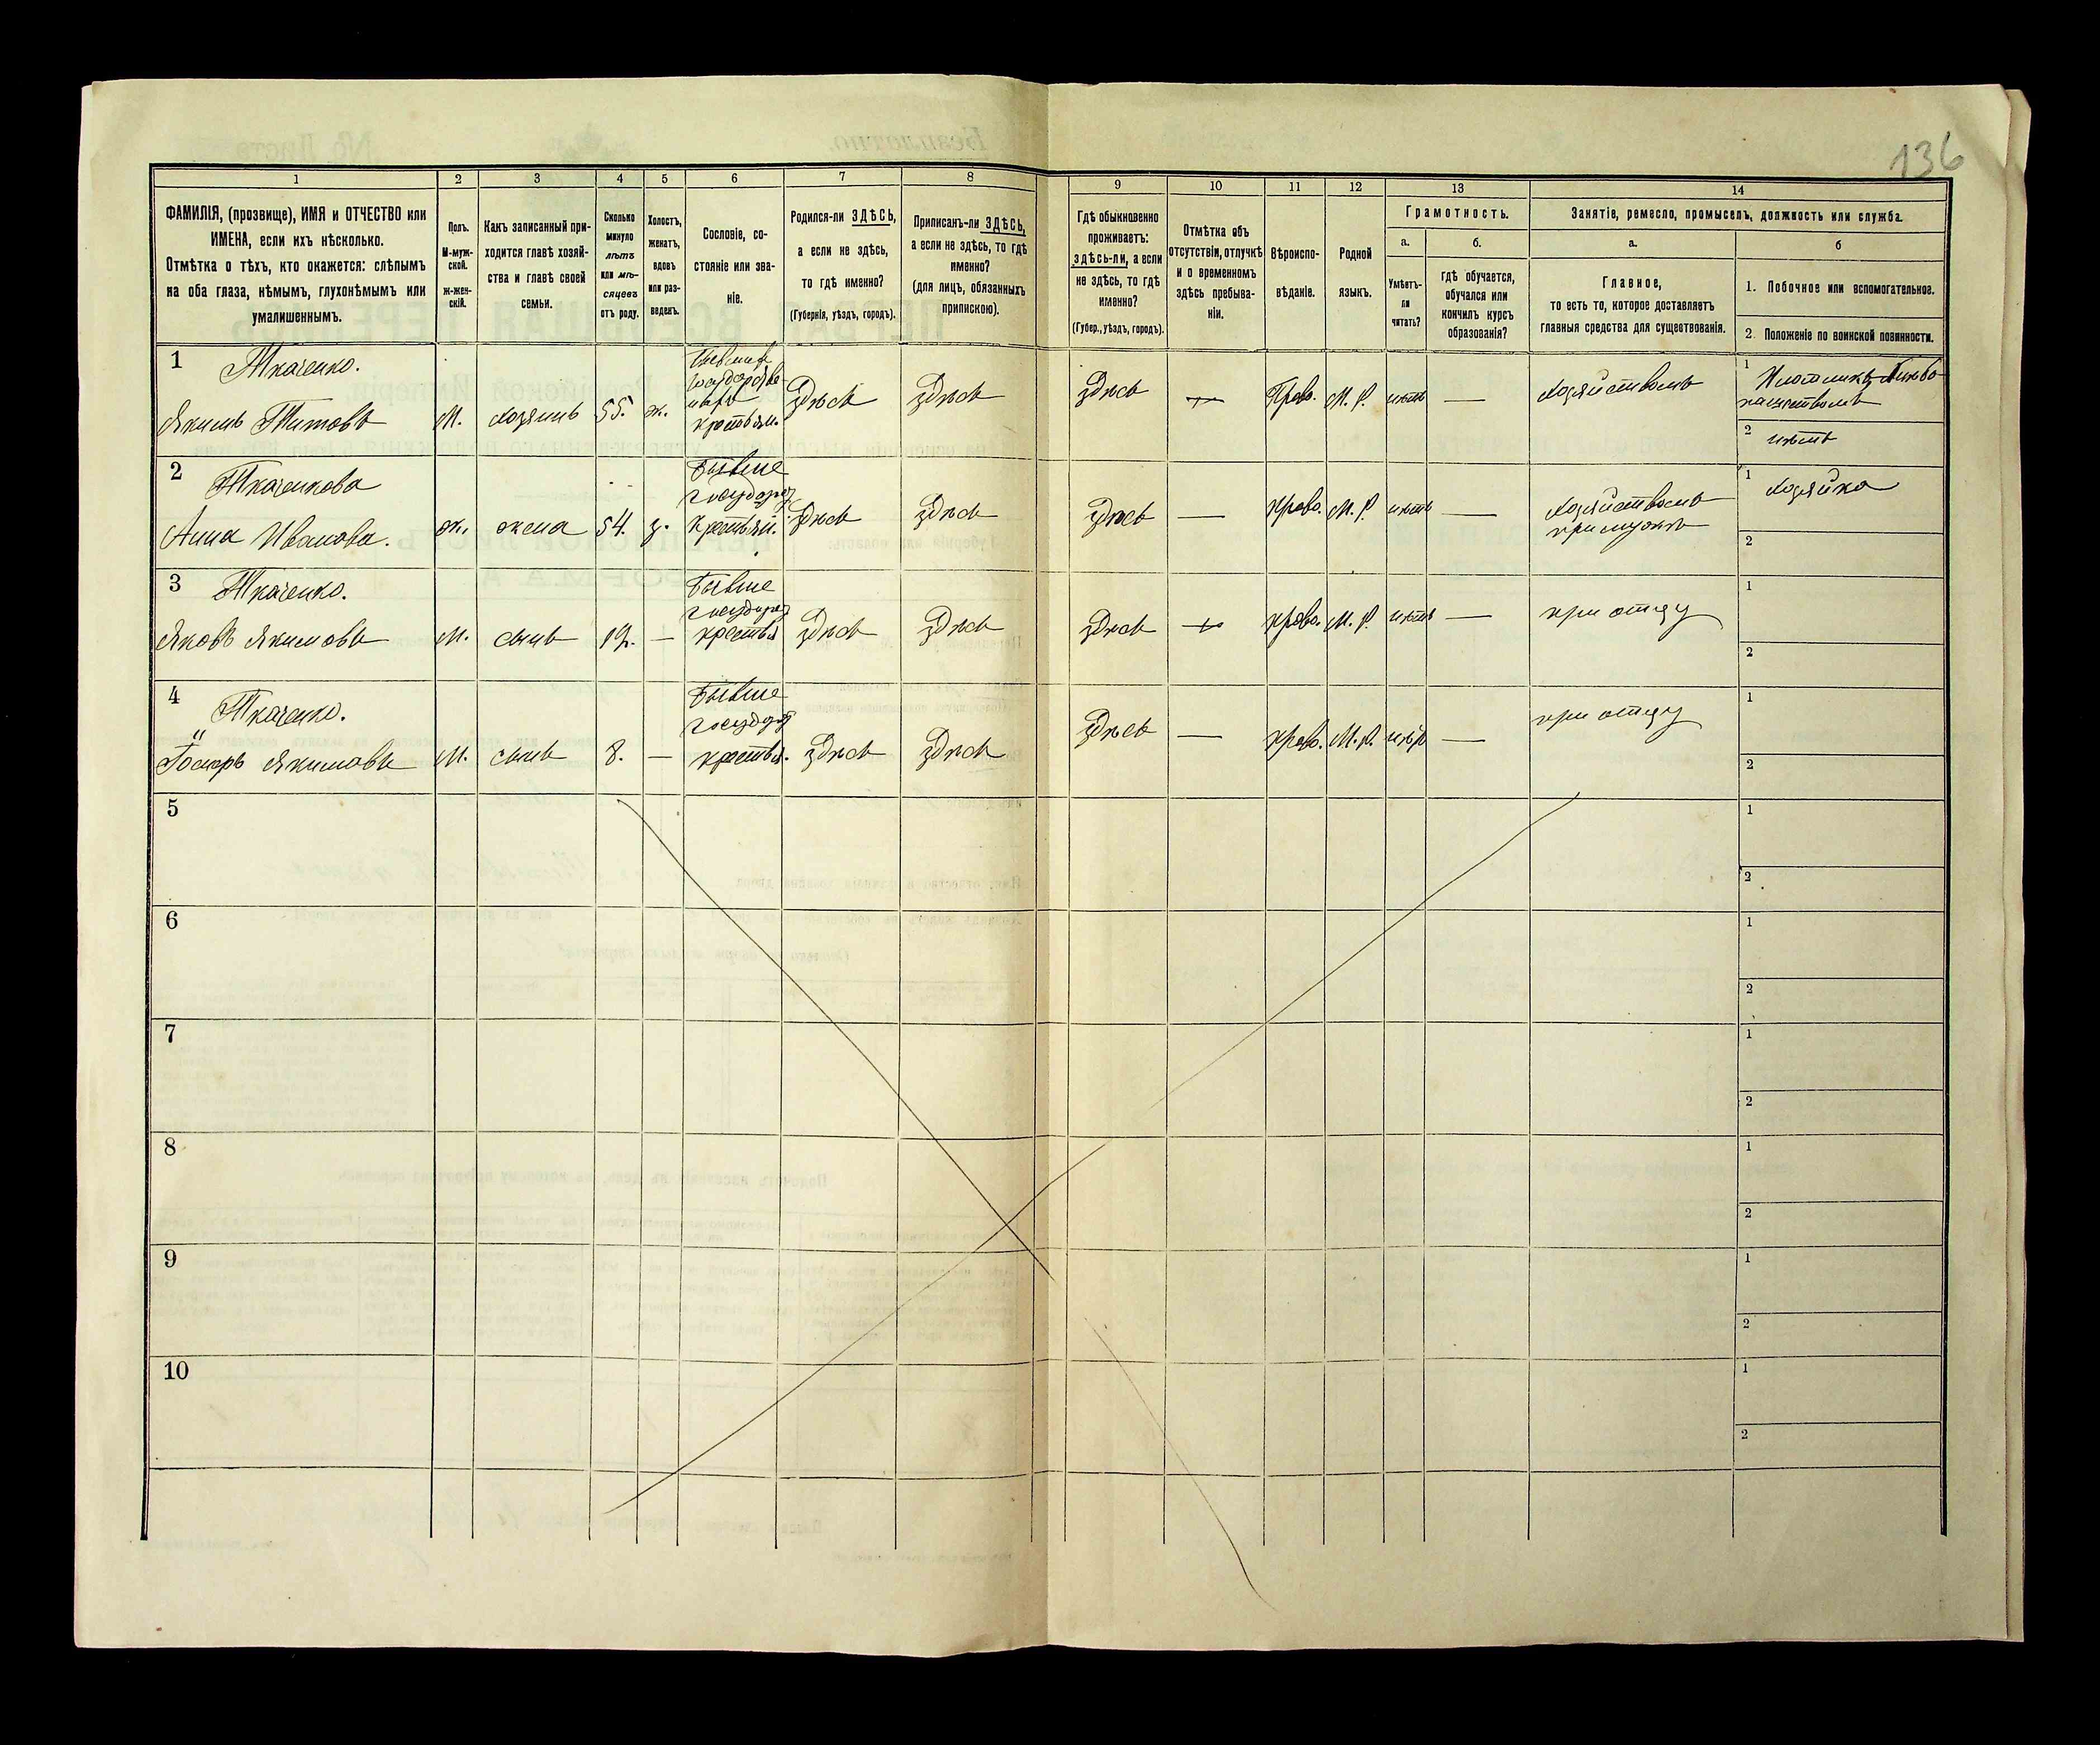 136
1
2
3
4
5
6
7
8
9
10
11
12
13
14
ФАМИЛІЯ, (прозвище), ИМЯ и ОТЧЕСТВО или
ИМЕНА, если ихъ нѣсколько.
Отмѣтка о тѣхъ, кто окажется: слѣпымъ
на оба глаза, нѣмымъ, глухонѣмымъ или
умалишеннымъ.
Полъ.
М-муж-
ской.
Ж-жен-
скій.
Какъ записанный при-
ходится главѣ хозяй-
ства и главѣ своей
семьи.
Сколько
минуло
лѣтъ
или мѣ-
сяцевъ
отъ роду.
Холостъ,
женатъ,
вдовъ
или раз-
веденъ.
Сословіе, со-
стояніе или зва-
ніе.
Родился-ли ЗДѢСЬ,
а если не здѣсь,
то гдѣ именно?
(Губернія, уѣздъ, городъ).
Приписанъ-ли ЗДѢСЬ,
а если не здѣсь, то гдѣ
именно?
(для лицъ, обязанныхъ
припискою).
Гдѣ обыкновенно
проживаетъ:
здѣсь-ли, а если
не здѣсь, то гдѣ
именно?
(Губер., уѣздъ, городъ).
Отмѣтка объ
отсутствіи, отлучкѣ
и о временномъ
здѣсь пребыва-
ніи.
Вѣроиспо-
вѣданіе.
Родной
языкъ.
Грамотность.
а.
Умѣетъ-
ли
читать?
б.
гдѣ обучается,
обучался или
кончилъ курсъ
образованія?
Занятіе, ремесло, промыселъ, должность или служба.
а.
Главное,
то есть то, которое доставляетъ
главныя средства для существованія.
б
1. Побочное или вспомогательное.
2. Положеніе по воинской повинности.
1 Ткаченко.
Якимъ Титовъ
М.
хозяинъ
55.
ж.
крестьян.
Здѣсь
Здѣсь
Здѣсь
Право.
М. Р.
нѣтъ
—
Хозяйствомъ
1
2 нѣтъ
2 Ткаченкова
Анна Иванова.
ж.
жена
54.
з.
Бывше
государ
крестьян.
Здѣсь
Здѣсь
Здѣсь
—
право.
М. Р.
нѣтъ
—
Хозяйствомъ
при мужѣ
1 хозяйка
2
3 Ткаченко.
Яковъ Якимовъ
М.
сынъ
19.
—
Бывше
государ
крестья
Здѣсь
Здѣсь
Здѣсь
право.
М. Р.
нѣтъ
—
при отцу
1
2
4 Ткаченко.
Якимовъ
М.
сынъ
8.
—
Бывше
государ
крестья.
Здѣсь
Здѣсь
Здѣсь
—
право.
М. Р.
—
при отцу
1
2
5
1
2
6
1
2
7
1
2
8
1
2
9
1
2
10
1
2